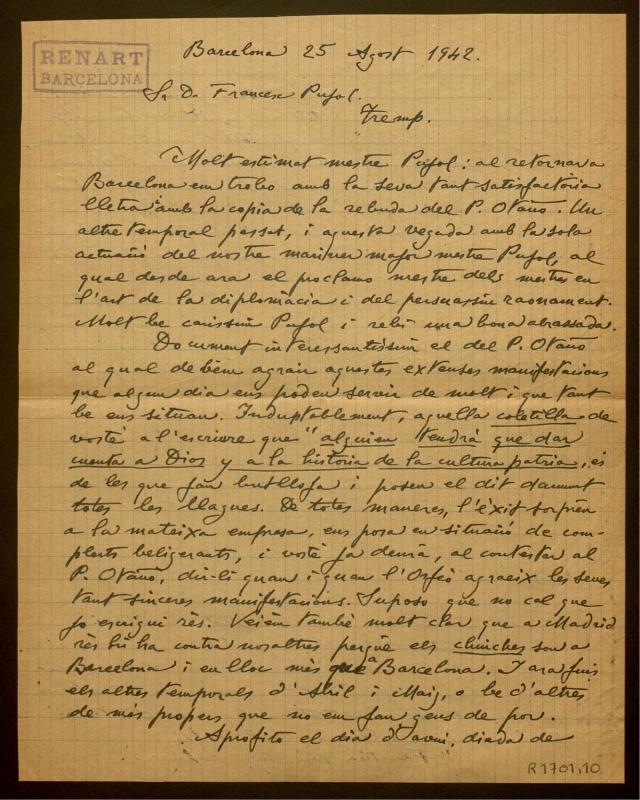 RENART
BARCELONA
Barcelona 25 Agost 1942.
Sr. D. Francesc Pujol.
Tremp.
Molt estimat mestre Pujol: al retornar a
Barcelona em trobo amb la seva tant satisfactoria
lletra amb la copia de la rebuda del P. Otaño. Un
altre temporal passat, i aquesta vegada amb la sola
actuació del nostre mariner major mestre Pujol, al
qual desde ara el proclamo mestre dels mestres en
l'art de la diplomàcia i del persuassiu raonament.
Molt be carissim Pujol i rebi una bona abrassada.
Document interessantissim el del P. Otaño
al qual devem agrair aquestes extenses manifestacions
que algun dia ens poden servir de molt i que tant
be ens situan. Induptablement, aquella coletilla de
vosté a l'escriure que "alguien tendrá que dar
cuenta a Dios y a la historia de la cultura patria, és
de les que fan butllofa i posen el dit damunt
totes les llagues. De totes maneres, l'éxit sorprèn
a la mateixa empresa, ens posa en situació de com-
plerts beligerants, i vosté ja deurà, al contestar al
P. Otaño, dir-li quan i quan l'Orfeó agraeix les seves
tant sinceres manifestacions. Suposo que no cal que
jo escrigui rès. Veièm també molt clar que a Madrid
rès hi ha contra nosaltres perquè els chinches son a
Barcelona i en lloc mès que a Barcelona. I ara fins
els altres temporals d'Abril i Maig, o be d'altres
de mès propers que no em fan gens de por.
Aprofito el dia d'avui, diada de
R 1701,10